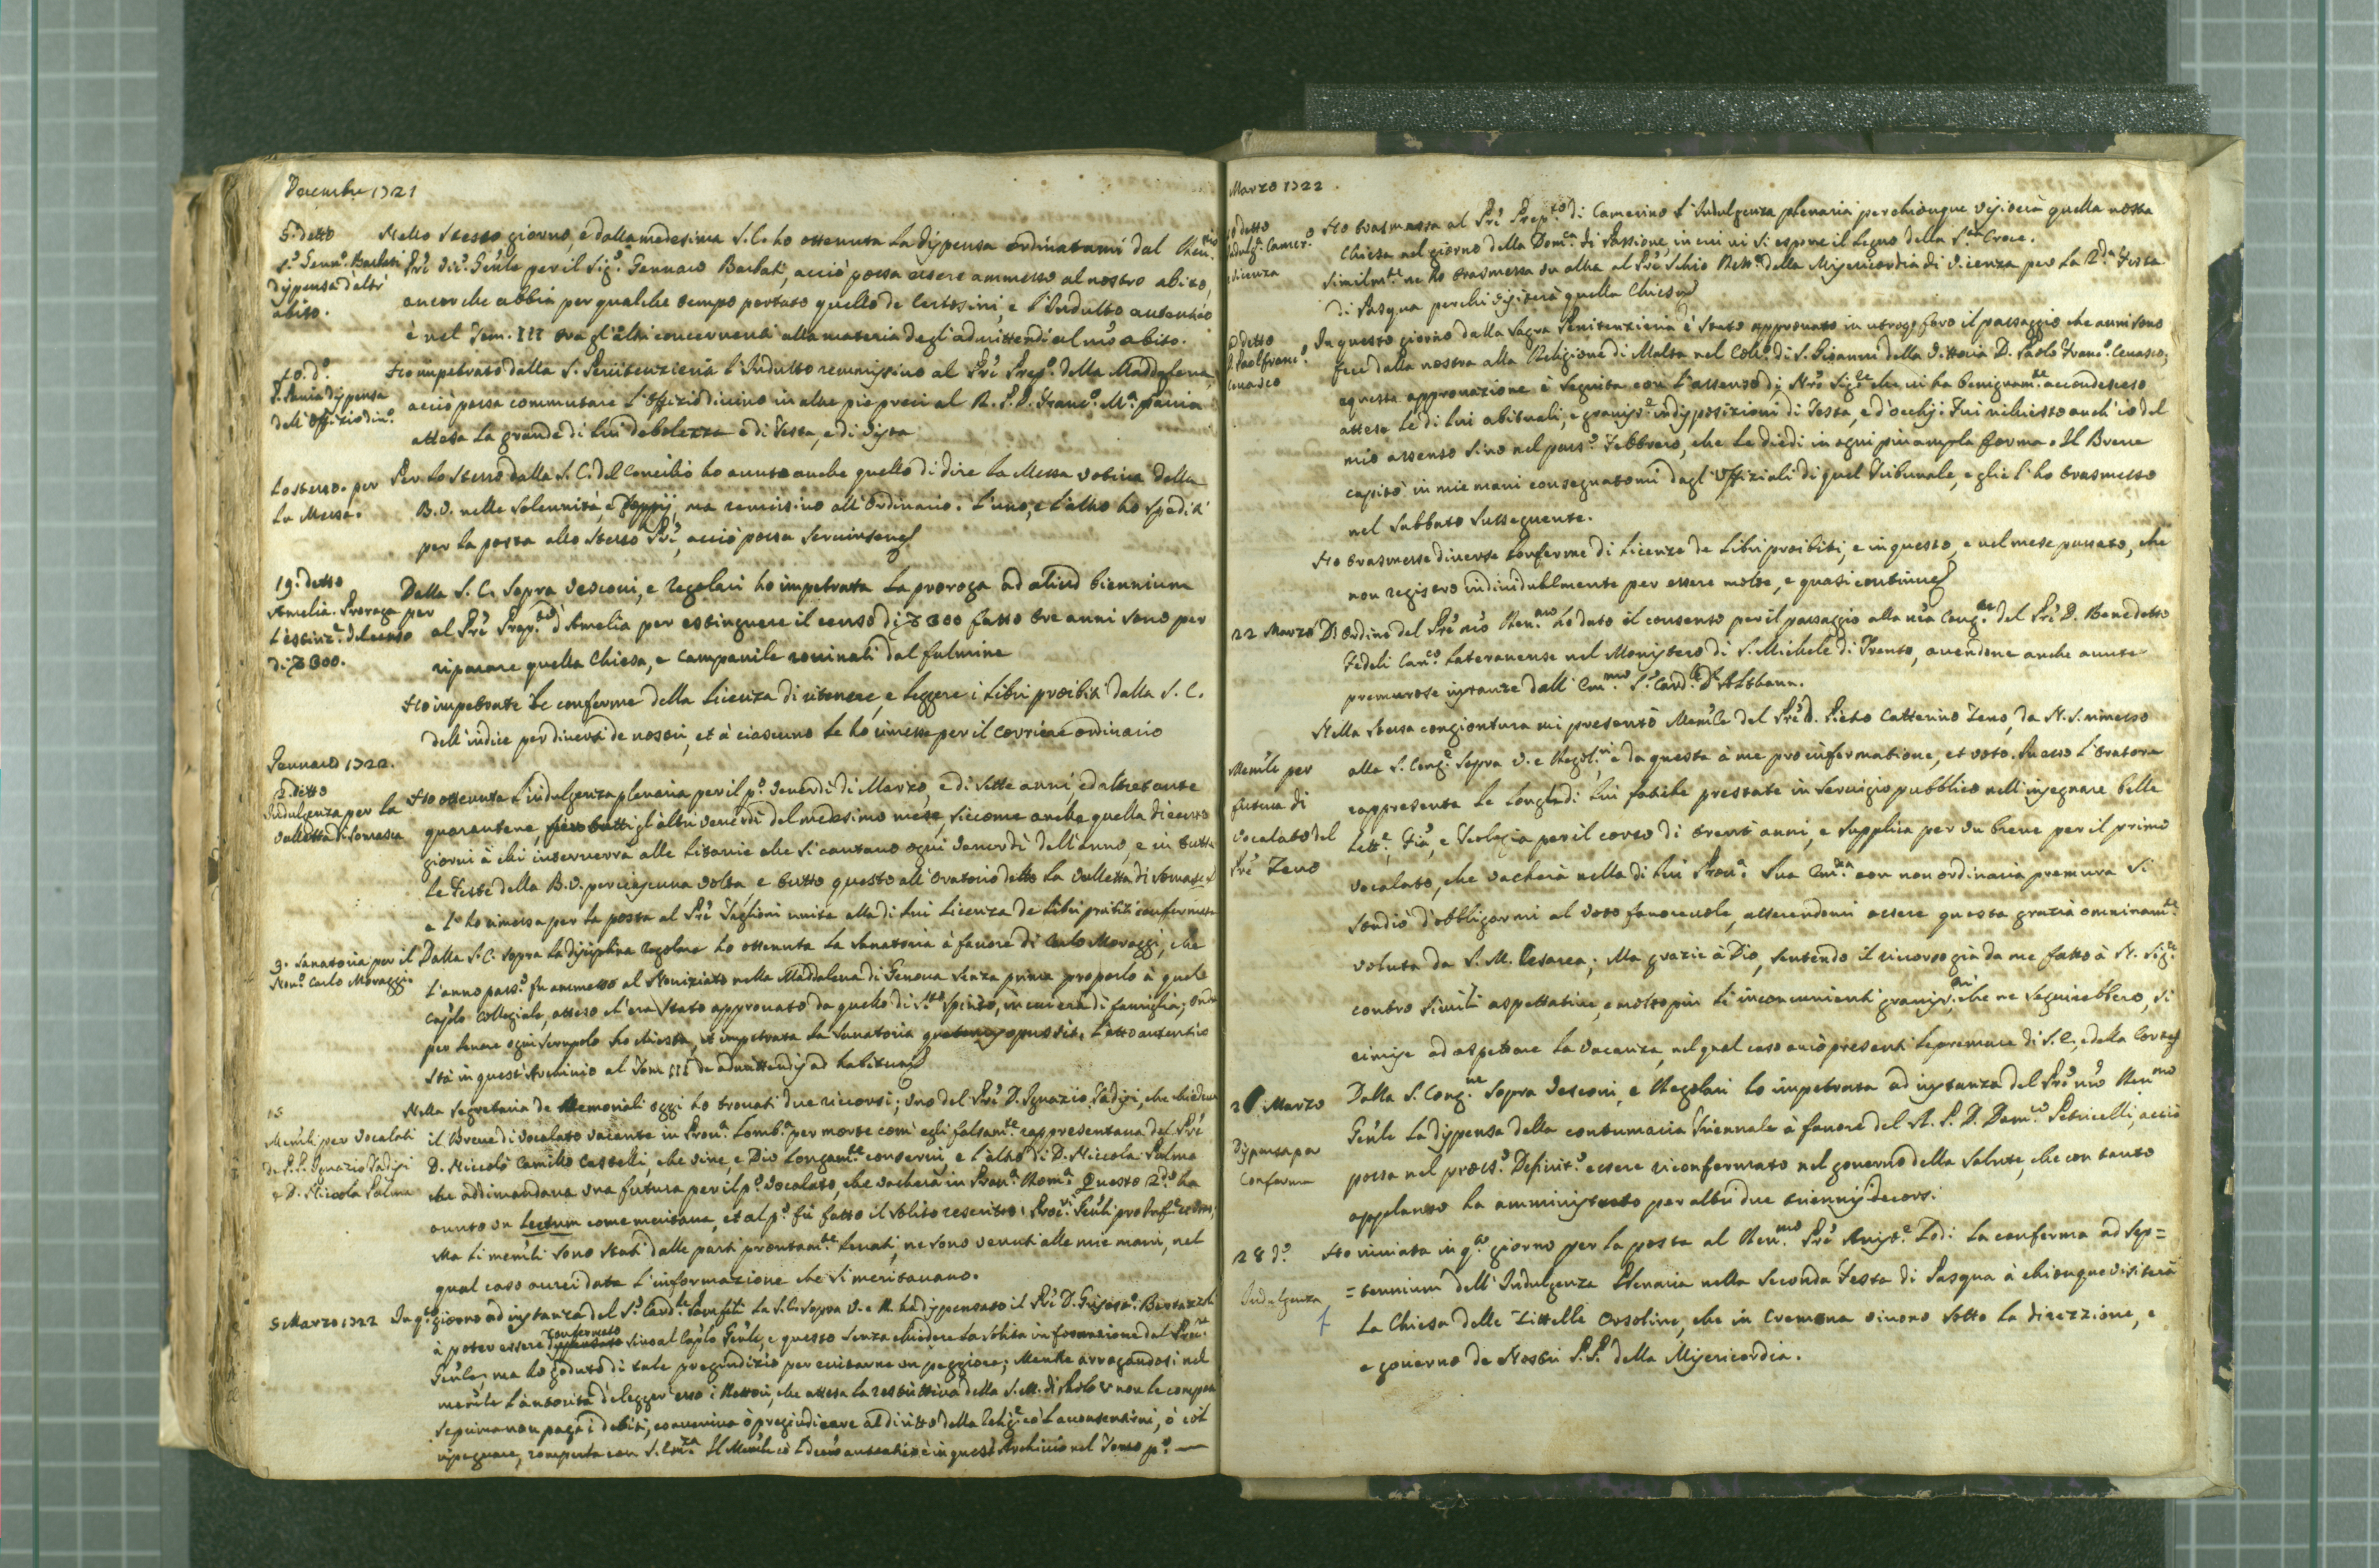 Decembre 1721
5. detto
S.r Genn.o Barbati
dispensa d'altr'
abito.
Nello stesso giorno, e dalla medesima S.C. ho ottenuta la dispensa ordinatami dal Ren.mo
Pre Vic.o Gen̄le per il Sig.r Gennaro Barbati, acciò possa essere ammesso al nostro abito,
ancorche abbia per qualche tempo portato quello de Certosini, e l'Indulto autentico
è nel Tom. III tra gl'altri concernenti alla materia degl'admittendi al nr̄o abito.
10. d.o
P. Pavia dispensa
dell'Offizio div.o
Ho impetrato dalla S. Penitenzieria l'Indulto remissivo al Prē Prep.o della Maddalena,
acciò possa commutare l'Offizio divino in altre pie preci al R. P. D. Franc.o M.a Pavia
attesa la grande di lui debolezza e di testa, e di vista
Lo stesso. per
la Messa.
Per lo stesso dalla S. C. del Concilio ho avuto anche quello di dire la Messa votiva della
B.V. nelle solennità, e doppij, ma remissivo all'Ordinario. L'uno, e l'altro ho spediti
per la posta allo stesso Prē, acciò possa servirsene
19. detto
Amelia. Proroga per
l'estinz.e del censo
di 300.
Dalla S. C. sopra Vescovi, e Regolari ho impetrata la proroga ad aliud biennium
al Prē Prep.to d'Amelia per estinguere il censo di 300 fatto tre anni sono per
riparare quella Chiesa, e Campanile rovinati dal fulmine
Ho impetrate le conferme della licenza di ritenere, e leggere i libri proibiti dalla S. C.
dell'indice per diversi de nostri, et à ciascuno le ho rimesse per il corriere ordinario
Gennaro 1722.
2. detto
Indulgenza per la
Valletta di Somasca
Ho ottenuta l'indulgenza plenaria per il p.o Venerdì di Marzo, e di sette anni, ed altretante
quarantene, tutti gl'altri venerdì del medesimo mese, siccome anche quella di cento
giorni à chi interverrà alle Litanie che si cantano ogni Venerdì dell'anno, e in tutte
le Feste della B.V. per ciascuna volta, e tutto questo all'Oratorio detto la Valletta di Somasca
e l'ho rimessa per la posta al Prē Taglioni unita alla di lui licenza de libri proibiti confermata
9. Sanatoria per il
Nov.o Carlo Moraggi
Dalla S.C. sopra la disciplina regolare ho ottenuta la Sanatoria à favore di Carlo Moraggi, che
l'anno pass.o fu ammesso al Noviziato nella Maddalena di Genova senza prima proporlo à quel
Cap̄lo Collegiale, atteso ch'era stato approvato da quello di S.to Spirito, in cui era di famiglia; onde
per levare ogni scrupolo ho chiesta, et impetrata la Sanatoria quatenus opus sit. L'atto autentico
stà in quest'Archivio al Tom III de admittendis ad habitum
15
Memōli per Vocalati
de P.P. Ignazio Tadisi
e D. Niccola Palma
Nella Segretaria de Memoriali oggi ho trovati due ricorsi; uno del Prē D. Ignazio Tadisi, che chiedeva
il Breve di Vocalato vacante in Prov.a Lomb.a per morte com'egli falsam.te rappresentava del Prē
D. Niccolò Camillo Castelli, che vive, e Dio longam.te conservi e l'altro di D. Niccola Palma
che addimandava una futura per il p.o Vocalato, che vacherà in Prov.a Rom.a Questo 2.do ha
avuto un lectum come meritava, et al p.o fù fatto il solito rescritto: Proc.ri Gen̄li pro
Ma li memōli sono stati dalle parti prontam.te levati, ne sono venuti alle mie mani, nel
qual caso averei data l'informazione che si meritavano.
5 Marzo 1722
In q.o giorno ad instanza del S.r Card.le Pamfili la S.C. sopra V. e R. ha dispensato il Prē D. Grisost.o Bertazzoli
à poter essere confermato sino al Cap̄lo Gen̄le, e questo senza chiedere la solita informazione dal Proc.re
Gen̄le, ma ho goduto di tale pregiudizio per evitarne un peggiore; Mentre arrogandosi nel
memōle l'autorità d'elegger esso i Rettori, che attesa la restrittiva della S.M. di Paolo V non le compete
se prima non paga i debiti, conveniva ò pregiudicare al diritto della Relig.e cò l'acconsentirvi, ò col
ripugnare, romperla con S. Em.za Il Memōle cò l decreto autentico è in quest'Archivio nel Tomo p.o
Marzo 1722.
detto
Indulg.a Camer.o
Vicenza
Ho trasmessa al Prē Prep.to di Camerino l'Indulgenza plenaria per chiunque visiterà quella nostra
Chiesa nel giorno della Dom.ca di Passione, in cui ivi si espone il Legno della S.ta Croce.
Similm.te ne ho trasmessa un altra al Prē Schio Rett.e della Misericordia di Vicenza per la 2.da Festa
di Pasqua per chi visiterà quella Chiesa
detto
D. Paol Franc.o
Cevasco
In questo giorno dalla Sagra Penitenzieria è stato approvato in utroq. foro il passaggio che anni sono
fece dalla nostra alla Religione di Malta nel Coll.o di S. Giovanni della Vittoria D. Paolo Franc.o Cevasco,
e questa approvazione è seguita con l'assenso di Nrō Sig.re che vi ha benignam.te accondesceso
attese le di lui abituali, e graviss.e indisposizioni di testa, e d'occhi: Fui richiesto anch'io del
mio assenso sino nel pass.o Febbraro, che le diedi in ogni più ampla forma. Il Breve
capitò in mie mani consegnatomi dagl'Uffiziali di quel Tribunale, e glie l'ho trasmesso
nel Sabbato susseguente.
Ho trasmesse diverse conferme di licenze de libri proibiti, e in questo, e nel mese passato, che
non registro individualmente per essere molte, e quasi continue
22 Marzo
D'Ordine del Prē nrō Ren.mo ho dato il consenso per il passaggio alla nrā Cong.ne del Prē D. Benedetto
Fedeli Can.co Lateranense nel Monistero di S. Michele di Trento, avendone anche avute
premurose instanze dall'Em.mo S.r Card.le d'Althann.
Memōle per
futura di
Vocalato del
Prē Zeno
Nella stessa congiontura mi presentò Memōle del Prē D. Pietro Catterino Zeno, da N.S. rimesso
alla S. Cong.e sopra V. e Regol.ri, e da questa à me pro informatione, et voto. In esso l'Oratore
rappresenta le longhe di lui fatiche prestate in servigio pubblico nell'insegnare belle
Lett.e, Fia, e Teologia per il corso di trent'anni, e supplica per un breve per il primo
vocalato, che vacherà nella di lui Prov.a Sua Em.za con non ordinaria premura si
studiò d'obbligarmi al voto favorevole, asserendomi essere questa grazia omninam.te
voluta da S. M. Cesarea; Ma grazie à Dio, sentendo il ricorso già da me fatto à N. Sig.re
contro simili aspettative, e molto più li inconvenienti graviss.mi che ne seguirebbero, si
rimise ad aspettare la vacanza, nel qual caso avrò presenti le premure di S.E., e della Corte
2 Marzo
Dispensa p
Conferma
Dalla S. Cong.ne sopra Vescovi, e Regolari ho impetrata ad instanza del Prē nrō Ren.mo
Gen̄le la dispensa della contumacia triennale à favore del M. R. P. D. Dom.co Petricelli, acciò
possa nel pross.o Definit.o essere riconfermato nel governo della Salute, che con tanto
applauso ha amministrato per altri due triennij decorsi.
28 d.o
Indulgenza
Ho inviata in q.to giorno per la posta al Ren.mo Prē Lodi la conferma ad sep=
=tennium dell'Indulgenza Plenaria nella seconda Festa di Pasqua à chiunque visiterà
la Chiesa delle Zittelle Orsoline, che in Cremona vivono sotto la direzzione, e
e governo de Nostri P.P. della Misericordia.